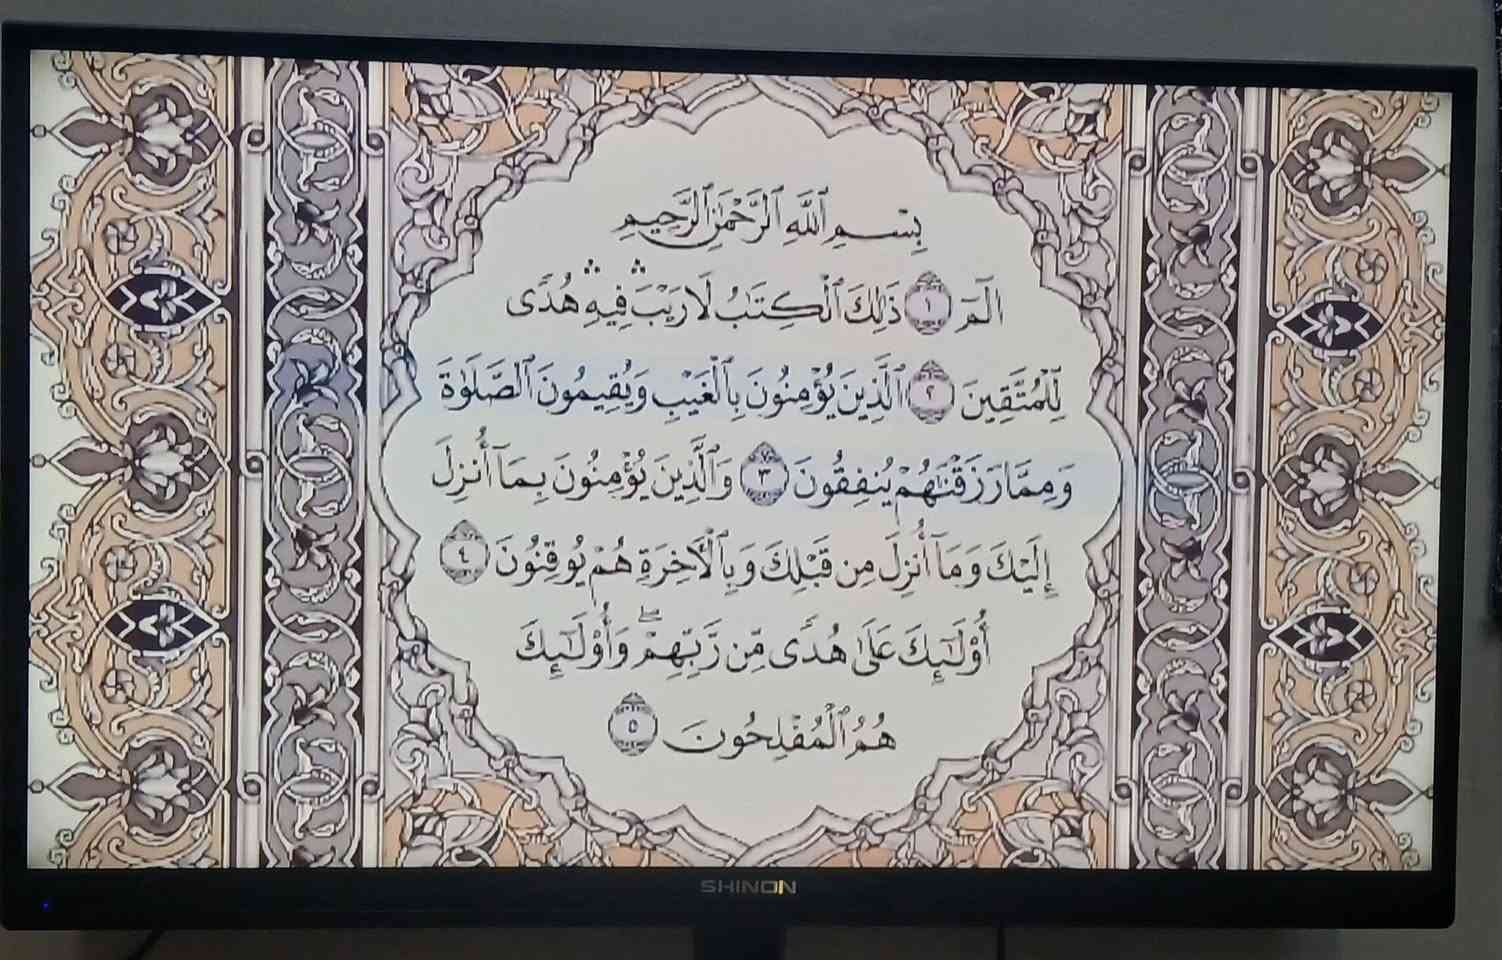 بِسْمِ ٱللَّهِ ٱلرَّحْمَٰنِ ٱلرَّحِيمِ
الٓمٓ ١ ذَٰلِكَ ٱلْكِتَٰبُ لَا رَيْبَ ۛ فِيهِ ۛ هُدًى
لِّلْمُتَّقِينَ ٢ ٱلَّذِينَ يُؤْمِنُونَ بِٱلْغَيْبِ وَيُقِيمُونَ ٱلصَّلَوٰةَ
وَمِمَّا رَزَقْنَٰهُمْ يُنفِقُونَ ٣ وَٱلَّذِينَ يُؤْمِنُونَ بِمَآ أُنزِلَ
إِلَيْكَ وَمَآ أُنزِلَ مِن قَبْلِكَ وَبِٱلْأَخِرَةِ هُمْ يُوقِنُونَ ٤
أُو۟لَٰٓئِكَ عَلَىٰ هُدًى مِّن رَّبِّهِمْ ۖ وَأُو۟لَٰٓئِكَ
هُمُ ٱلْمُفْلِحُونَ ٥
SHINON